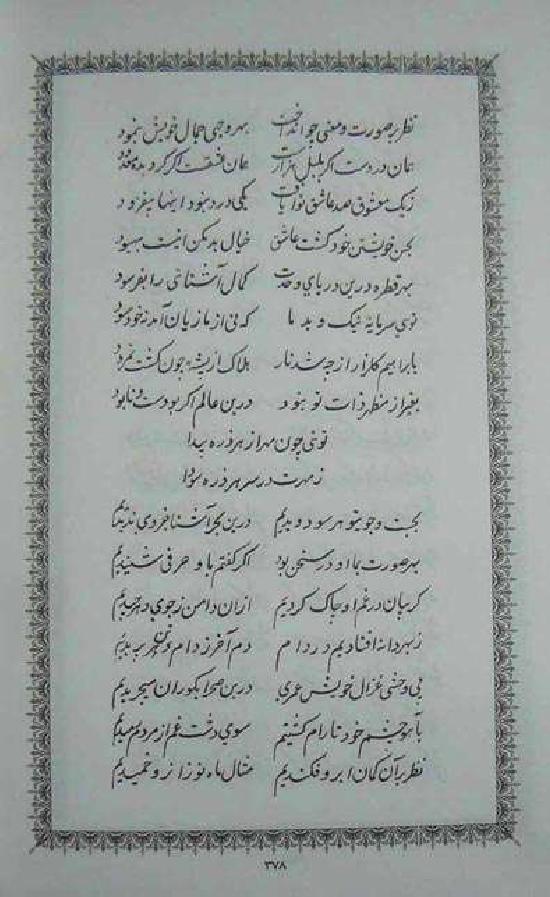 نظر بر صورت و معنی چو انداخت بهر وجهی جمال خویش بنمود
عیان در دست اگر بلبل
ز یک معشوق صد عاشق نوا یافت یکی در در نبود اینها بیفزود
بجن خویشتن خود گشت عاشق خیال بد مکن اینست بهبود
بهر قطره درین دریای وحدت کمال آشنائی را بفرمود
توی سرمایه نیک و بد ما که نی از ما زیان آمد نه خود سود
بابراهیم گلزار از چه شد نار هلاک از پشه چون گشت نمرود
بغیر از مظهر ذات تو نبود درین عالم اگر بود است و نابود
توئی چون مهر از هر ذره پیدا
ز مهرت در سر هر ذره سودا
بجست و جوی تو هر سو دویدیم درین بحر آشنا فردی ندیدیم
بهر صورت بما او در سخن بود اگر گفتم باو حرفی شنیدیم
گریبان در غم او چاک کردیم ازان دامن ز جوی
ز بهر دانه افتادیم در دام دم آخر ز دام و
پی وحشی غزال خویش عمری درین صحرا بگوران میچریدیم
بآهو چشم خود تا رام گشتیم سوی دشت غم از مردم رمیدیم
نظر بر آن کمان ابرو فکندیم مثال ماه نو زانرو خمیدیم
۳۷۸